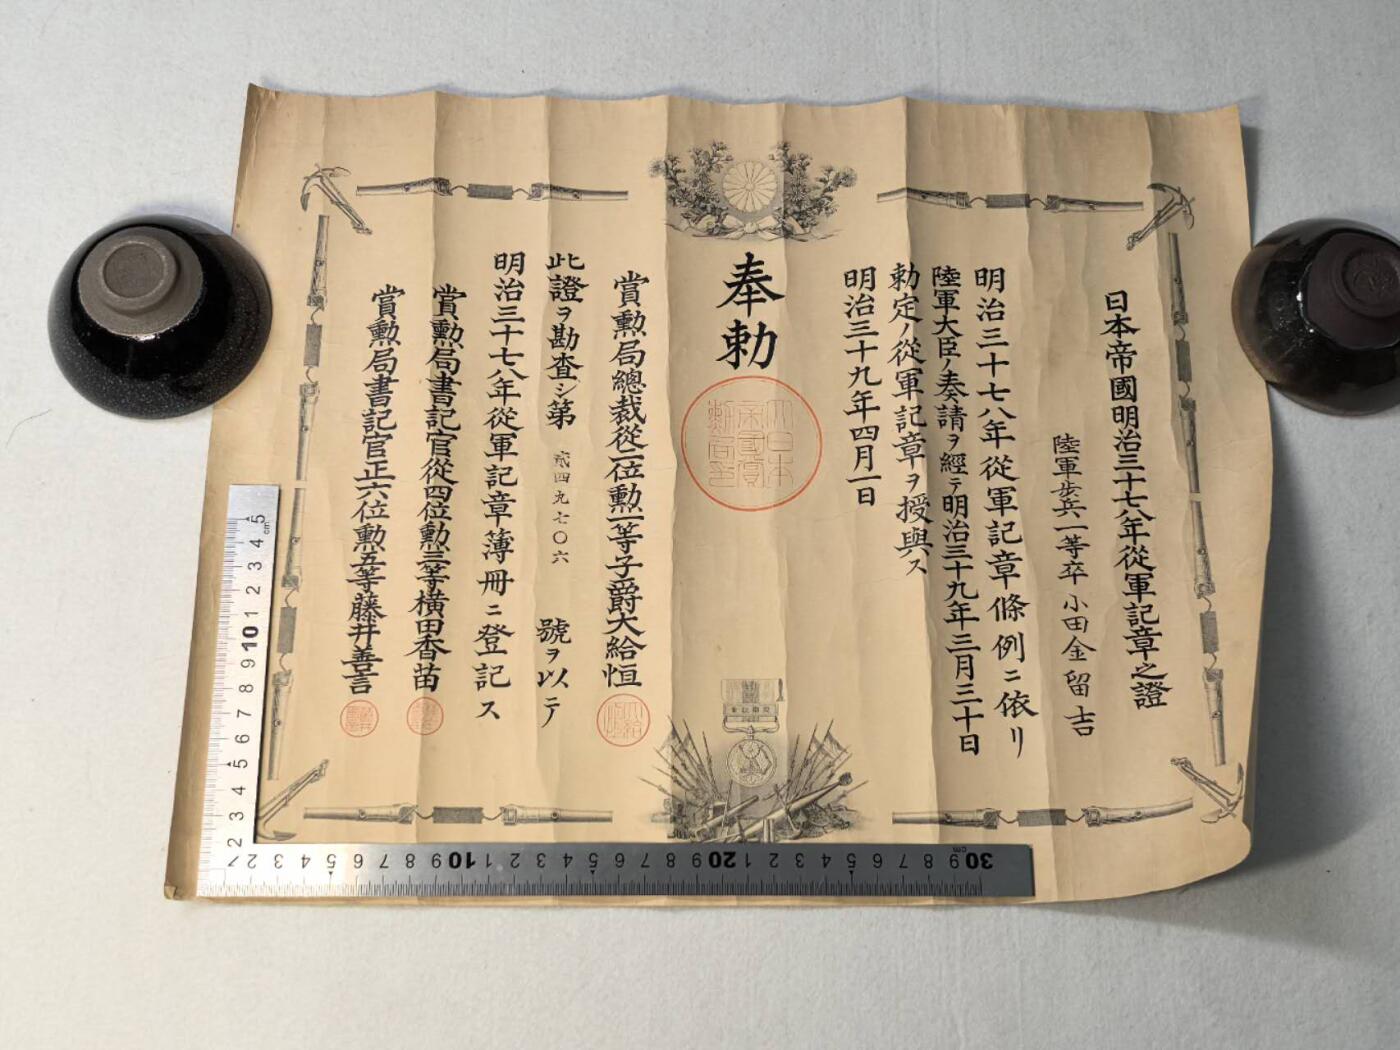 日本帝國明治三十七八年從軍記章之證
陸軍步兵一等卒 小田金留吉
明治三十七八年從軍記章條例ニ依リ
陸軍大臣ノ奏請ヲ經テ明治三十九年三月三十日
勅定ノ從軍記章ヲ授與ス
明治三十九年四月一日
奉勅
大日本
帝國賞
勳局印
賞勲局總裁從二位勲一等子爵大給恒
此證ヲ勘査シ第 貳四九七〇六 號ヲ以テ
明治三十七八年從軍記章簿冊ニ登記ス
賞勲局書記官從四位勲三等横田香苗
賞勲局書記官正六位勲五等藤井善言
5 cm
4
3
2
1
10
9
8
7
6
5
4
3
2
2 3 4 5 6 7 8 9 10 1 2 3 4 5 6 7 8 9 20 1 2 3 4 5 6 7 8 9 30 cm